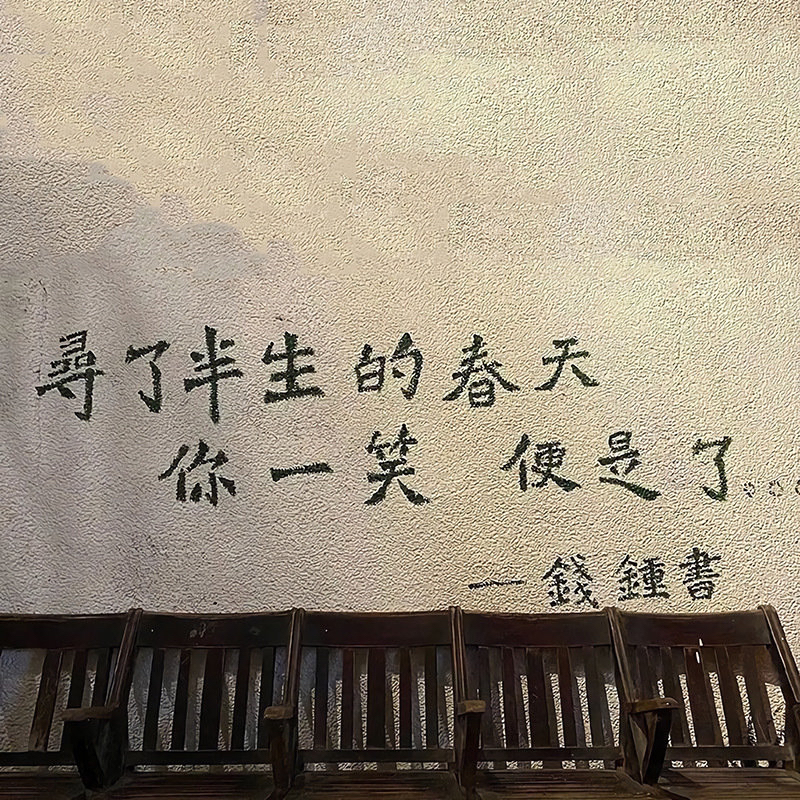 尋了半生的春天
你一笑 便是了...
一錢鍾書